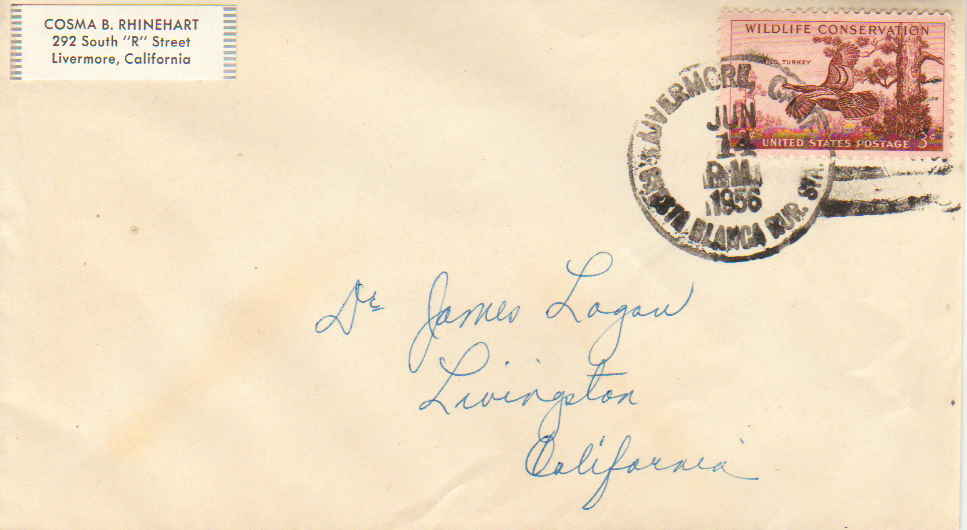 COSMA B. RHINEHART
292 South "R" Street
Livermore, California
WILDLIFE CONSERVATION
WILD TURKEY
UNITED STATES POSTAGE 3¢
LIVERMORE, CA
JUN
14
P.M.
1956
CRESTA BLANCA RUR. STA.
Dr James Logan
Livingston
California